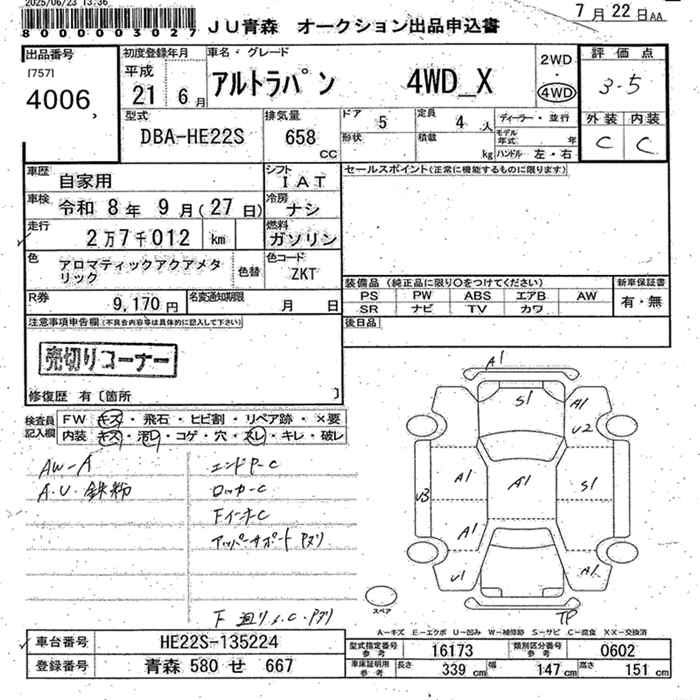 2025/06/23 13:36
8000003027
JU青森 オークション出品申込書
7月22日AA
出品番号
[757]
4006
初度登録年月
平成
21 6月
車名・グレード
アルトラパン 4WD_X
2WD
4WD
評価点
3.5
型式
DBA-HE22S
排気量
658
CC
ドア 5
形状
定員 4 人
積載 kg
ディーラー・並行
モデル年式 年
ハンドル 左・右
外装 内装
C C
車歴
自家用
シフト
IAT
セールスポイント(正常に機能するものに限ります)
車検
令和 8年 9月(27日)
冷房
ナシ
走行
2万7千012 km
燃料
ガソリン
色
アロマティックアクアメタリック
色替
色コード
ZKT
装備品 (純正品に限り○をつけてください)
新車保証書
PS PW ABS エアB AW
SR ナビ TV カワ
有・無
R券
9,170円
名変通知期限
月 日
後日品
注意事項申告欄(不具合内容等は具体的に記入して下さい)
売切りコーナー
修復歴 有〔箇所 〕
検査員記入欄
FW キズ・飛石・ヒビ割・リペア跡・×要
内装 キズ・汚レ・コゲ・穴・スレ・キレ・破レ
AW-A
A.U.鉄粉
エンドP-C
ロッカーC
FインナC
アッパーサポートアメリ
F廻リメ.C.アメリ
A1
S1
A1
U2
A1
A1
S1
U3
A1
U1
A1
TP
スペア
A-キズ E-エクボ U-凹み W-補修跡 S-サビ C-腐食 XX-交換済
車台番号
HE22S-135224
登録番号
青森 580 せ 667
型式指定番号
参考
16173
類別区分番号
参考
0602
車庫証明用
参考
長さ 339 cm
幅 147 cm
高さ 151 cm